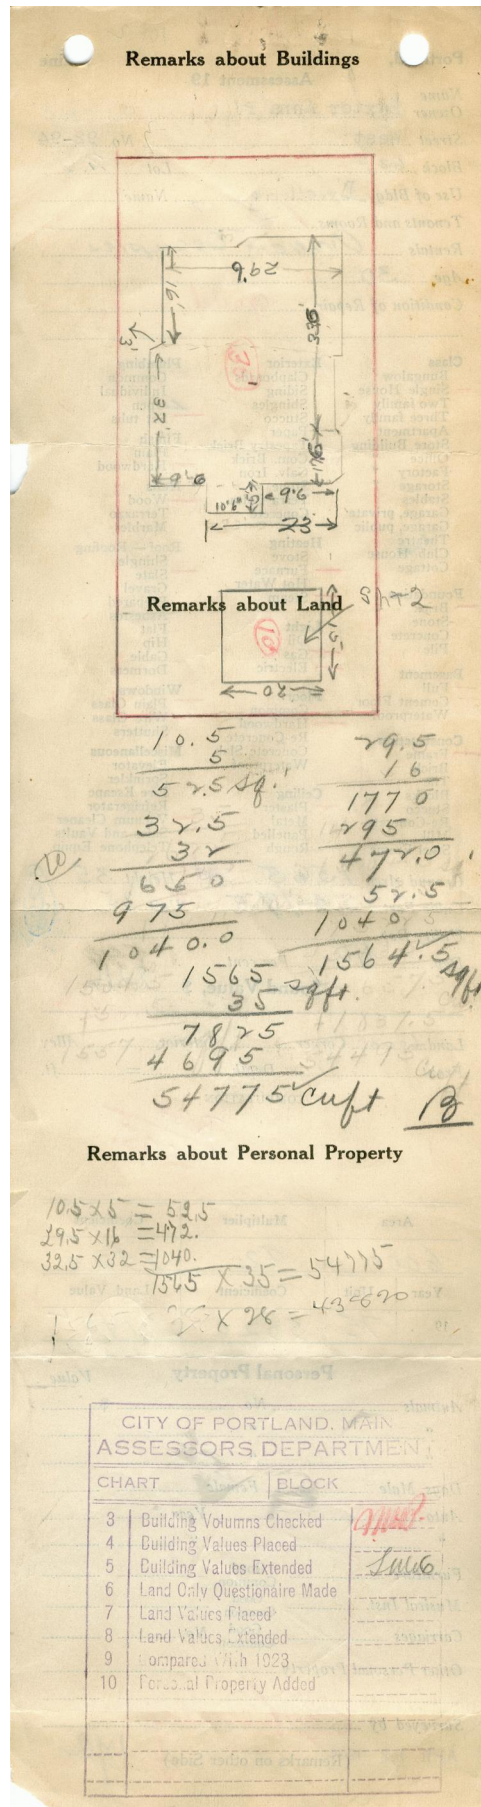 Remarks about Buildings
29'6
16'
3'
35
32'
9'6
10'6"
5'
9'6
23
Remarks about Land
10
20
10.5
5
52.5 sq.'
32.5
32
650
975
1040.0
29.5
16
1770
295
472.0
52.5
1040
1564.5 sqft
1565 sqft.
35
7825
4695
54775 cuft
B
Remarks about Personal Property
10.5 x 5 = 52.5
29.5 x 16 = 472.
32.5 x 32 = 1040.
1565 x 35 = 54775
x 28 = 43820
CITY OF PORTLAND, MAIN
ASSESSORS DEPARTMEN
CHART BLOCK
3 Building Volumns Checked
4 Building Values Placed
5 Building Values Extended
6 Land Only Questionaire Made
7 Land Values Placed
8 Land Values Extended
9 Compared With 1923
10 Personal Property Added